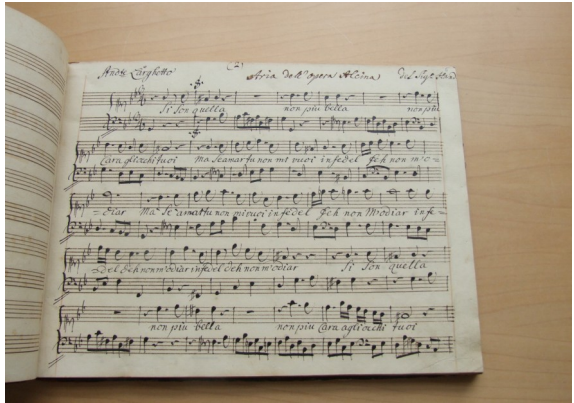 And.te Larghetto (2) Aria dell'opera Alcina Del Sig.r
Si son quella non piu bella non piu
Cara agliochi tuoi Ma se amar tu non mi vuoi infedel Deh non m'o=
=diar Ma Se amar tu non mi vuoi infedel Deh non M'odiar infe=
=del Deh non m'odiar infedel Deh non m'odiar Si Son quella
non piu bella non piu Cara agliocchi tuoi